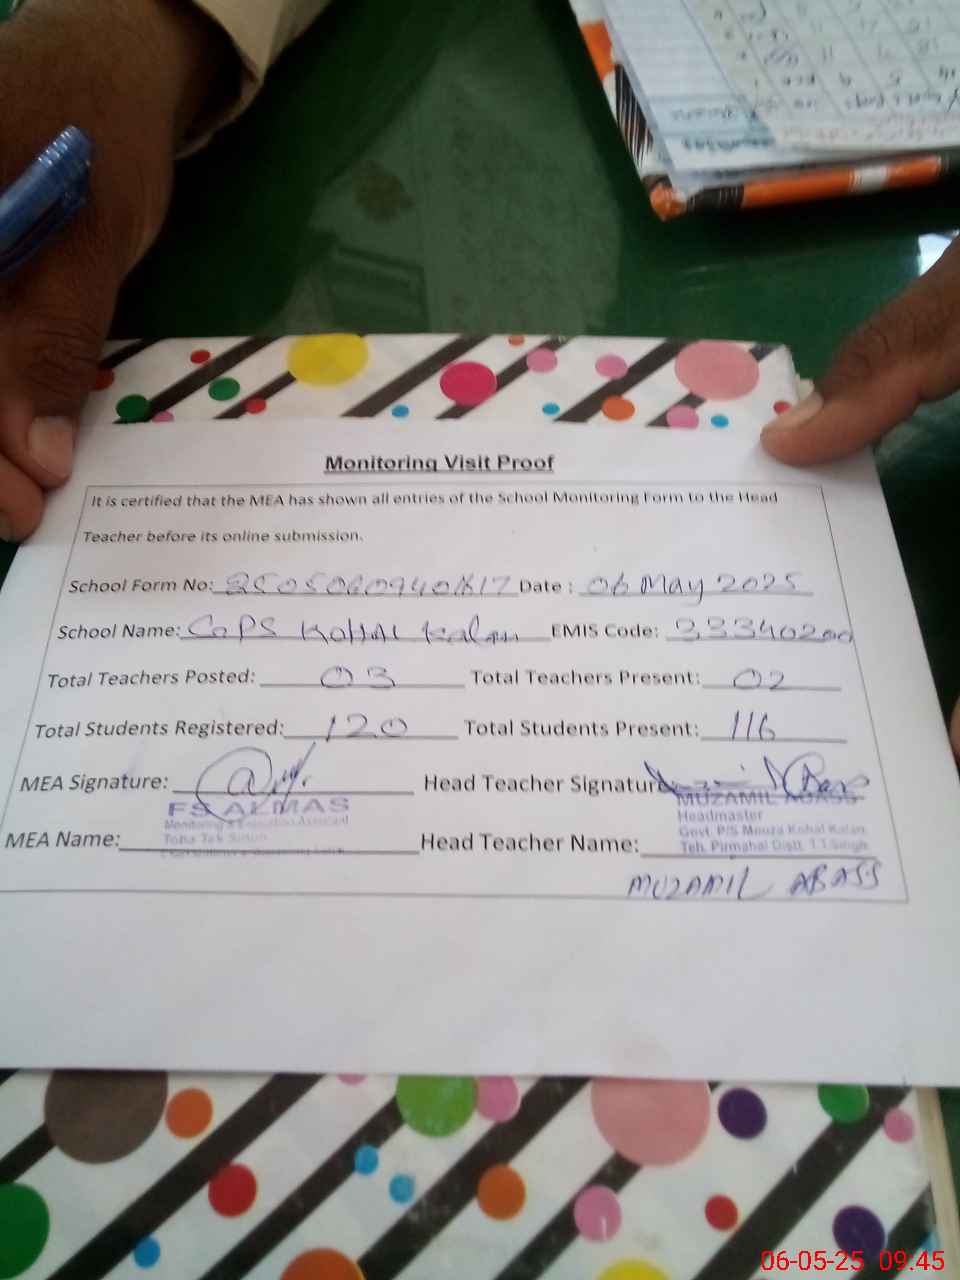 Monitoring Visit Proof
It is certified that the MEA has shown all entries of the School Monitoring Form to the Head
Teacher before its online submission.
School Form No: Date : 06 May 2025
School Name: GPS Kohal Kalan EMIS Code: 33340200
Total Teachers Posted: 03 Total Teachers Present: 02
Total Students Registered: 120 Total Students Present: 116
MEA Signature: Head Teacher Signature
FS ALMAS
Monitoring & Evaluation Assistant
Toba Tek Singh
MUZAMIL ABASS
Headmaster
Govt. P/S Mouza Kohal Kalan
Teh. Pirmahal Distt. T.T.Singh
MEA Name: Head Teacher Name:
MUZAMIL ABASS
06-05-25 09:45